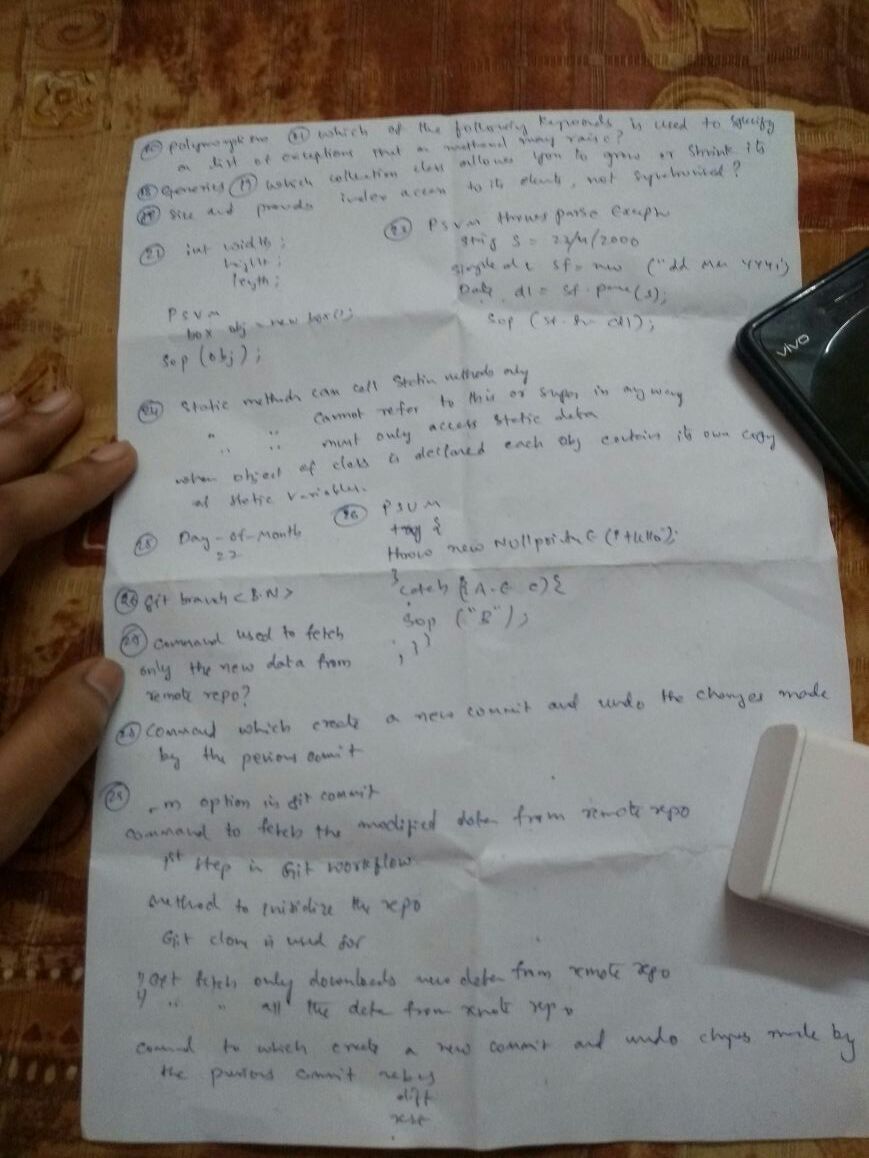 which of the following keywords is used to specify
a list of exceptions that a method may raise?
Generics (19) which collection class allows you to grow or shrink its
size and provids index access to its elements, not synchronised?
(21) int width;
hight;
length;
PSVM
box obj = new box();
Sop (obj);
PSVM throws parse
S = 22/4/2000
sf = new ("dd
Date d1 = sf.parse(s);
Sop
(24) Static methods can call Static methods only
" " cannot refer to this or super in any way
" " must only access static data
when object of class is declared each obj contain its own copy
of static variables.
(25) Day-of-Month
22
(26) PSVM
try {
throw new Nullpoint E ("Hello");
}
catch (A.E e){
Sop ("B");
; } }
(26) git branch <B.N>
command used to fetch
only the new data from
remote repo?
(28) Command which create a new commit and undo the changes made
by the previous commit
-m option in git commit
command to fetch the modified data from remote repo
1st step in Git workflow
method to initialize the repo
Git clone is used for
Get fetch only downloads new data from remote repo
" " all the data from remote repo
to which create a new commit and undo made by
the previous commit
diff
vivo